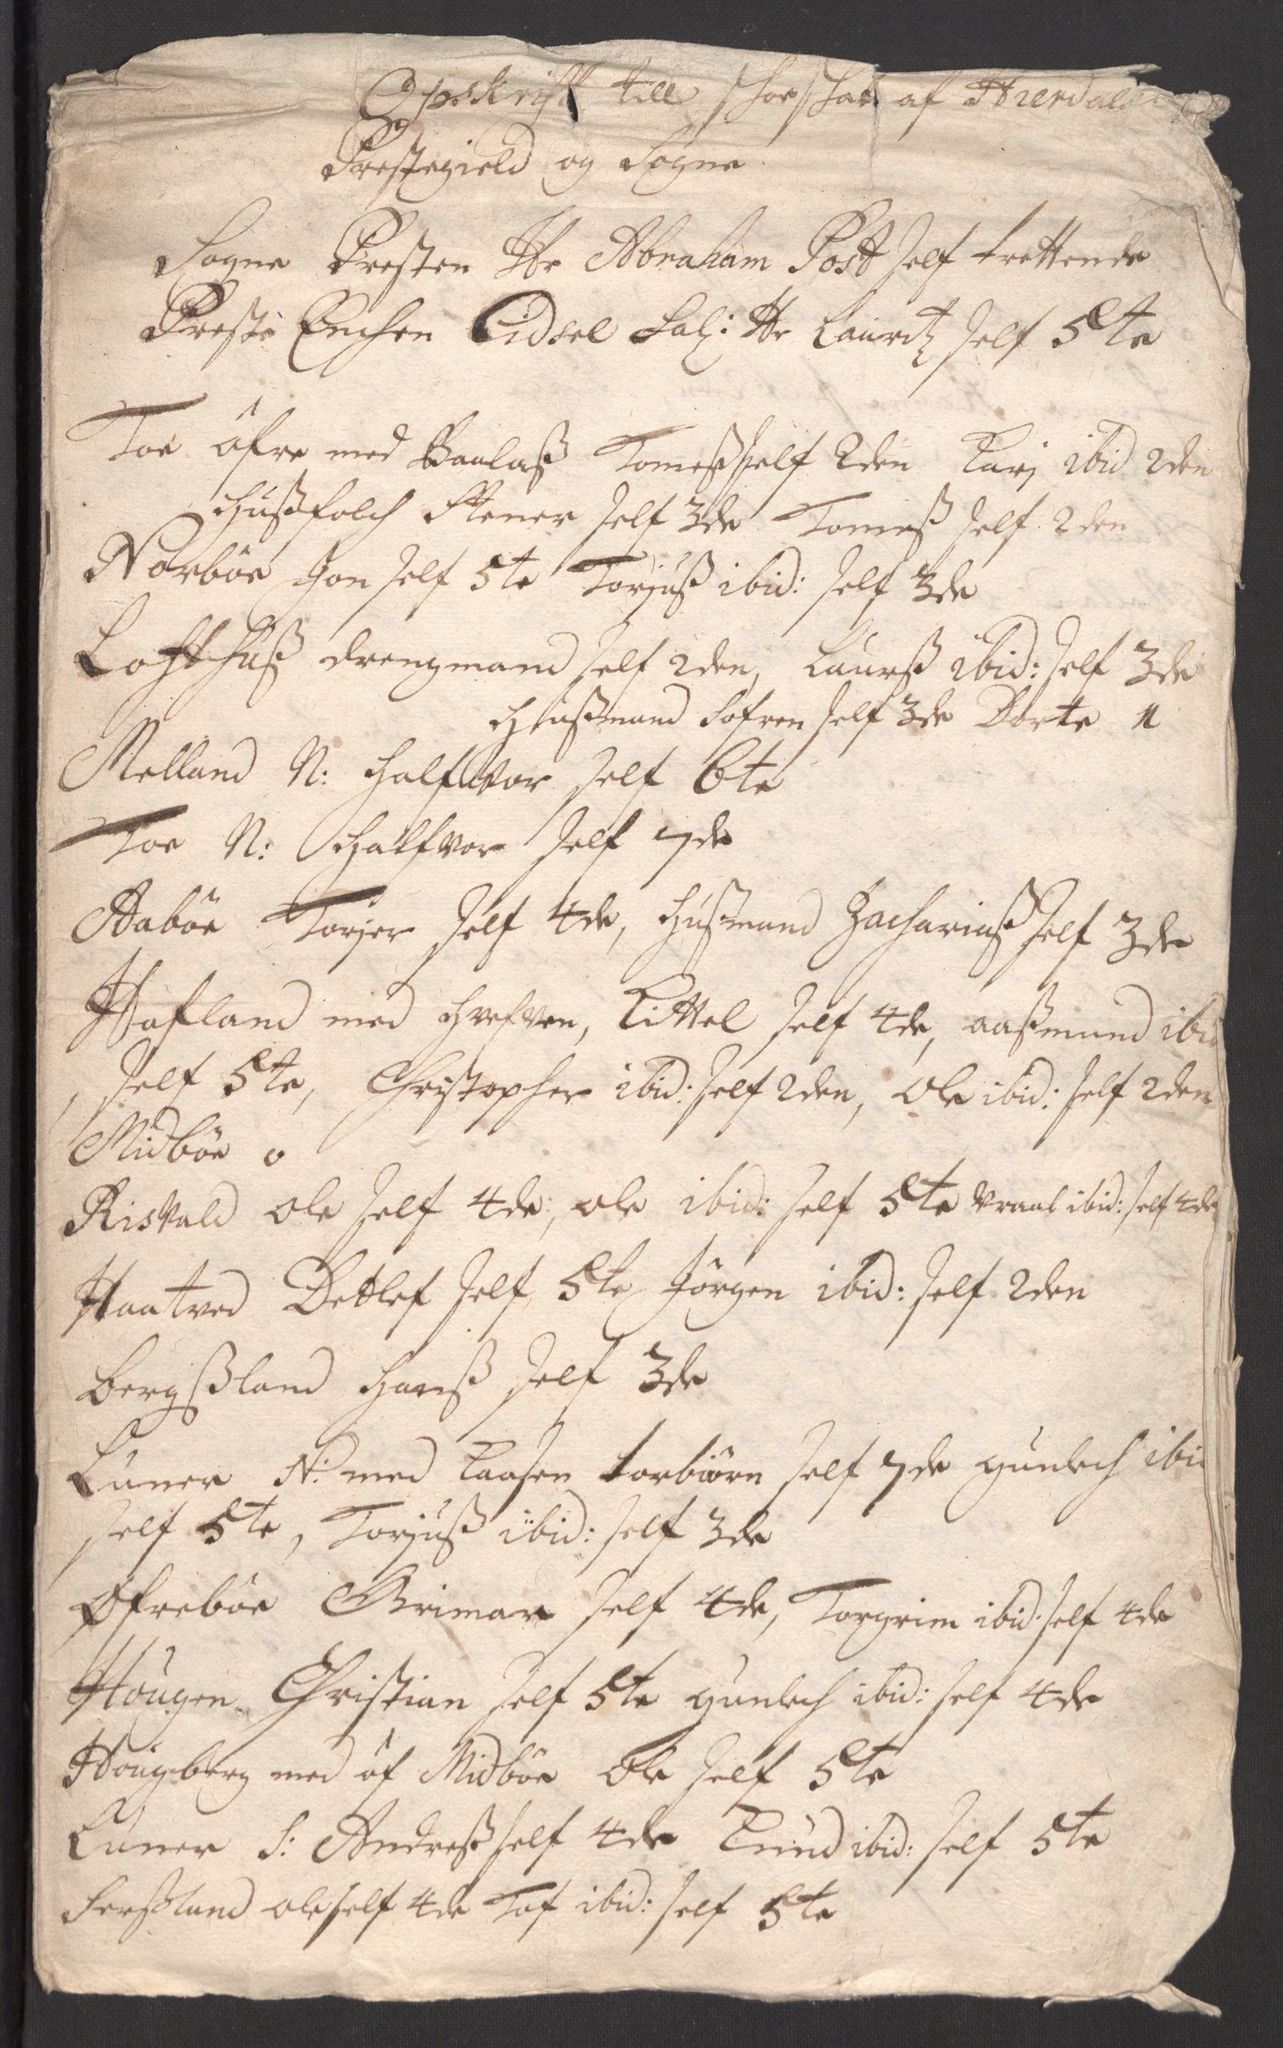 Opskrift till schoeschat af Hierdals
Prestegield og Sogne
Sogne Presten Hr Abraham Post self trettende
Preste Enchen Cidsel Sal: Hr Lauritz self 5te
Toe öfre med Baalaß Tomeß self 2den Kari ibid 2den
hußfolch Stener self 3de Tomeß self 2den
Norböe Jon self 5te Torjuß ibid: self 3de
Lofthuß drengmand self 2den, Laurß ibid: self 3de
Hußmand Sofren self 3de Dorte 1
Melland N: Halfvor self 6te
Toe N: Halfvor self 7de
Aaböe Torjer self 4de, Hußmand Zachariaß self 3de
Hafland med Hvefven, Kittel self 4de, aaßmund ibid
self 5te, Christopher ibid: self 2den, Ole ibid: self 2den
Midböe 0
Risvald ole self 4de, ole ibid: self 5te Vraal ibid: self 4de
Haatved Detlef self 5te Jörgen ibid: self 2den
Bergßland Hanß self 3de
Luner N: med Kaasen torbiörn self 7de gunlech ibid
self 5te, Torjuß ibid: self 3de
Øfreböe Grimar self 4de, Torgrim ibid: self 4de
Hougen Christian self 5te gunlech ibid: self 4de
Hougberg med öf Midböe Ole self 5te
Luner S: Andreß self 4de Knud ibid: self 5te
Forßland ole self 4de Tof ibid: self 5te